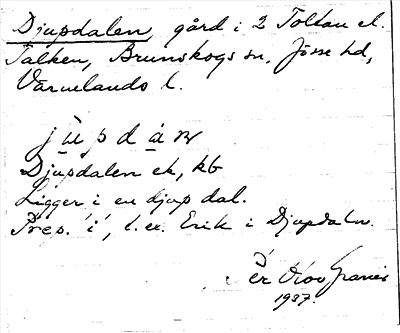 Djupdalen, gård i 2 Toltan el.
Talken, Brunskogs sn, Jösse hd,
Värmlands l.
jupdan
Djupdalen ek, kb
Ligger i en djup dal.
Prep. 'i', t.ex. Erik i Djupdaln.
Per
1937.